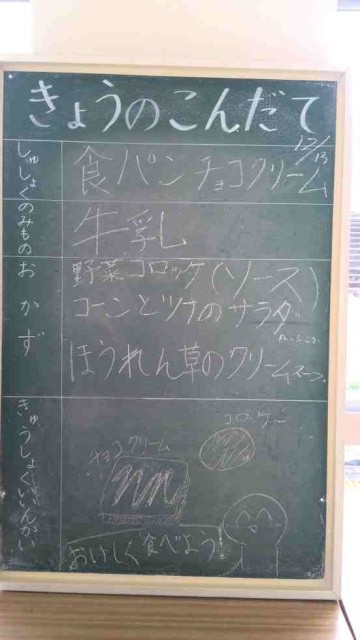 きょうのこんだて
12/13
しゅしょく
食パン チョコクリーム
のみもの
牛乳
おかず
野菜コロッケ(ソース)
コーンとツナのサラダ
ドレッシング
ほうれん草のクリームスープ
きゅうしょくいいんかい
コロッケー
チョコクリーム
おいしく食べよう!